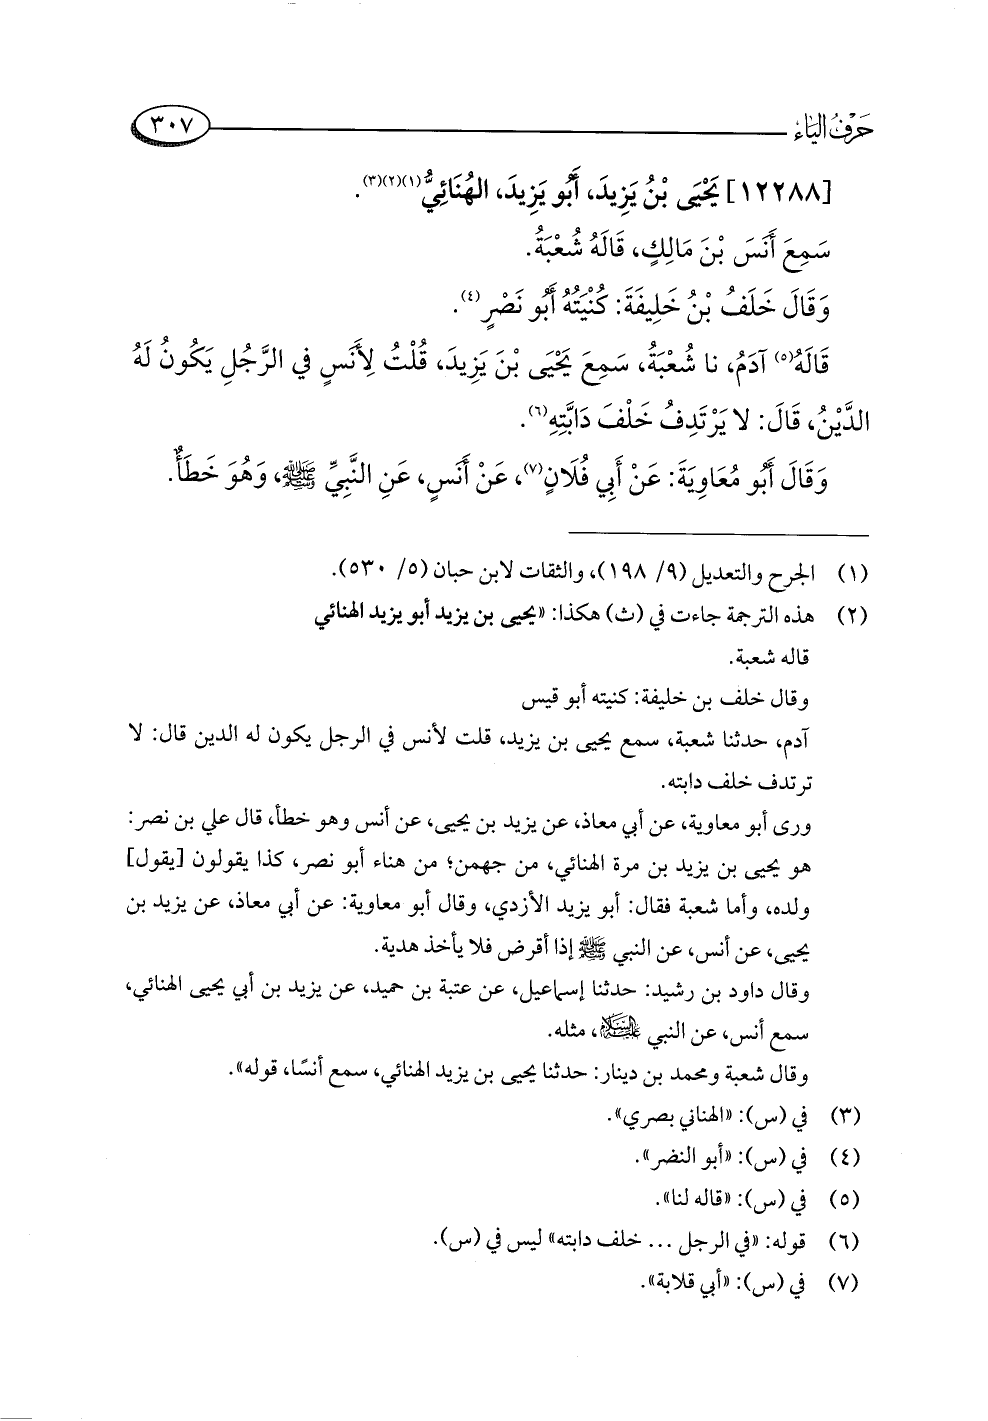 حَرْفُ اليَاء
٣٠٧
[١٢٢٨٨] يَحْيَى بْنُ يَزِيدَ، أَبُو يَزِيدَ، الهُنَائِيُّ(١)(٢)(٣).
سَمِعَ أَنَسَ بْنَ مَالِكٍ، قَالَهُ شُعْبَةُ.
وَقَالَ خَلَفُ بْنُ خَلِيفَةَ: كُنْيَتُهُ أَبُو نَصْرٍ(٤).
قَالَهُ(٥) آدَمُ، نا شُعْبَةُ، سَمِعَ يَحْيَى بْنَ يَزِيدَ، قُلْتُ لِأَنَسٍ فِي الرَّجُلِ يَكُونُ لَهُ
الدَّيْنُ، قَالَ: لا يَرْتَدِفُ خَلْفَ دَابَّتِهِ(٦).
وَقَالَ أَبُو مُعَاوِيَةَ: عَنْ أَبِي فُلَانٍ(٧)، عَنْ أَنَسٍ، عَنِ النَّبِيِّ ﷺ، وَهُوَ خَطَأٌ.
(١) الجرح والتعديل (٩/ ١٩٨)، والثقات لابن حبان (٥/ ٥٣٠).
(٢) هذه الترجمة جاءت في (ث) هكذا: «يحيى بن يزيد أبو يزيد الهنائي
قاله شعبة.
وقال خلف بن خليفة: كنيته أبو قيس
آدم، حدثنا شعبة، سمع يحيى بن يزيد، قلت لأنس في الرجل يكون له الدين قال: لا
ترتدف خلف دابته.
ورى أبو معاوية، عن أبي معاذ، عن يزيد بن يحيى، عن أنس وهو خطأ، قال علي بن نصر:
هو يحيى بن يزيد بن مرة الهنائي، من جهمن؛ من هناء أبو نصر، كذا يقولون [يقول]
ولده، وأما شعبة فقال: أبو يزيد الأزدي، وقال أبو معاوية: عن أبي معاذ، عن يزيد بن
يحيى، عن أنس، عن النبي ﷺ إذا أقرض فلا يأخذ هدية.
وقال داود بن رشيد: حدثنا إسماعيل، عن عتبة بن حميد، عن يزيد بن أبي يحيى الهنائي،
سمع أنس، عن النبي عليه السلام، مثله.
وقال شعبة ومحمد بن دينار: حدثنا يحيى بن يزيد الهنائي، سمع أنسًا، قوله».
(٣) في (س): «الهناني بصري».
(٤) في (س): «أبو النضر».
(٥) في (س): «قاله لنا».
(٦) قوله: «في الرجل ... خلف دابته» ليس في (س).
(٧) في (س): «أبي قلابة».